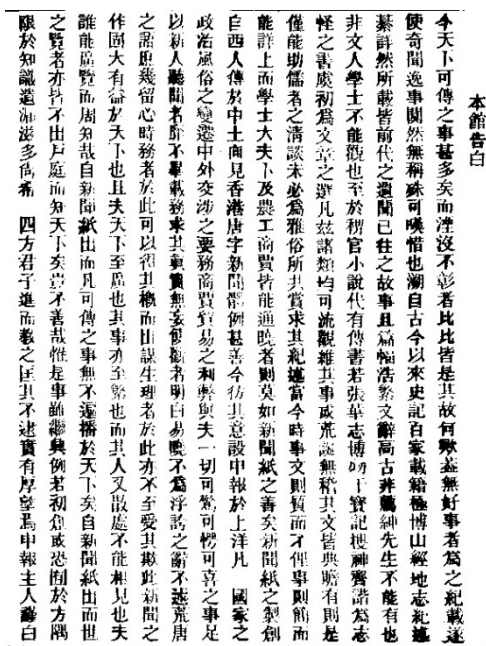 本館告白
今天下可傳之事甚多矣而湮沒不彰者比比皆是其故何歟蓋無好事者爲之紀載遂
使奇聞逸事闃然無稱殊可嘆惜也溯自古今以來史記百家載籍極博山經地志紀述
綦詳然所載皆前代之遺聞已往之故事且篇幅浩繁文辭高古非薦紳先生不能有也
非文人學士不能觀也至於稗官小說代有傳書若張華志博物干寶記搜神齊諧爲志
怪之書虞初爲文章之選凡茲諸類均可流觀維其事或荒誕無稽其文皆典贍有則是
僅能助儒者之清談未必爲雅俗所共賞求其紀述當今時事文則質而不俚事則簡而
能詳上而學士大夫下及農工商賈皆能通曉者則莫如新聞紙之善矣新聞紙之製創
自西人傳於中土向見香港唐字新聞體例甚善今仿其意設申報於上洋凡　國家之
政治風俗之變遷中外交涉之要務商賈貿易之利弊與夫一切可驚可愕可喜之事足
以新人聽聞者靡不畢載務求其真實無妄使觀者明白易曉不爲浮誇之辭不述荒唐
之語庶幾留心時務者於此可以得其概而出謀生理者於此亦不至受其欺此新聞之
作固大有益於天下也且夫天下至廣也其事亦至繁也而其人又散處不能相見也夫
誰能廣覽而周知哉自新聞紙出而凡可傳之事無不遍播於天下矣自新聞紙出而世
之覽者亦皆不出戶庭而知天下矣豈不善哉惟是事雖繼興例若初創或恐囿於方隅
限於知識遺漏滋多尚希　四方君子進而教之匡其不逮實有厚望焉申報主人謹白